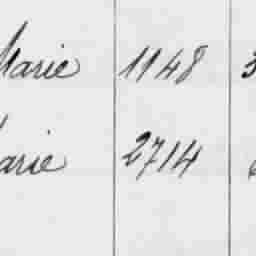 Marie 1148 3
Marie 2714